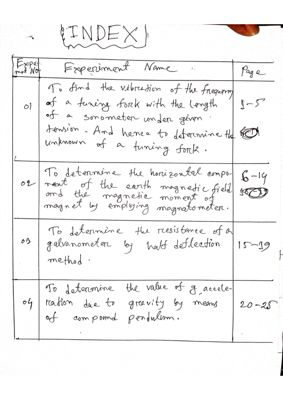 INDEX
Experiment No
Experiment Name
Page
01
To find the vibration of the frequency
of a tuning fork with the length
of a sonometer under given
tension. And hence to determine the
unknown of a tuning fork.
1-5
02
To determine the horizontal compo-
nent of the earth magnetic field
and the magnetic moment of
magnet by employing magnatometer.
6-14
03
To determine the resistance of a
galvanometer by half deflection
method.
15-19
04
To determine the value of g, accele-
ration due to gravity by means
of compound pendulum.
20-25